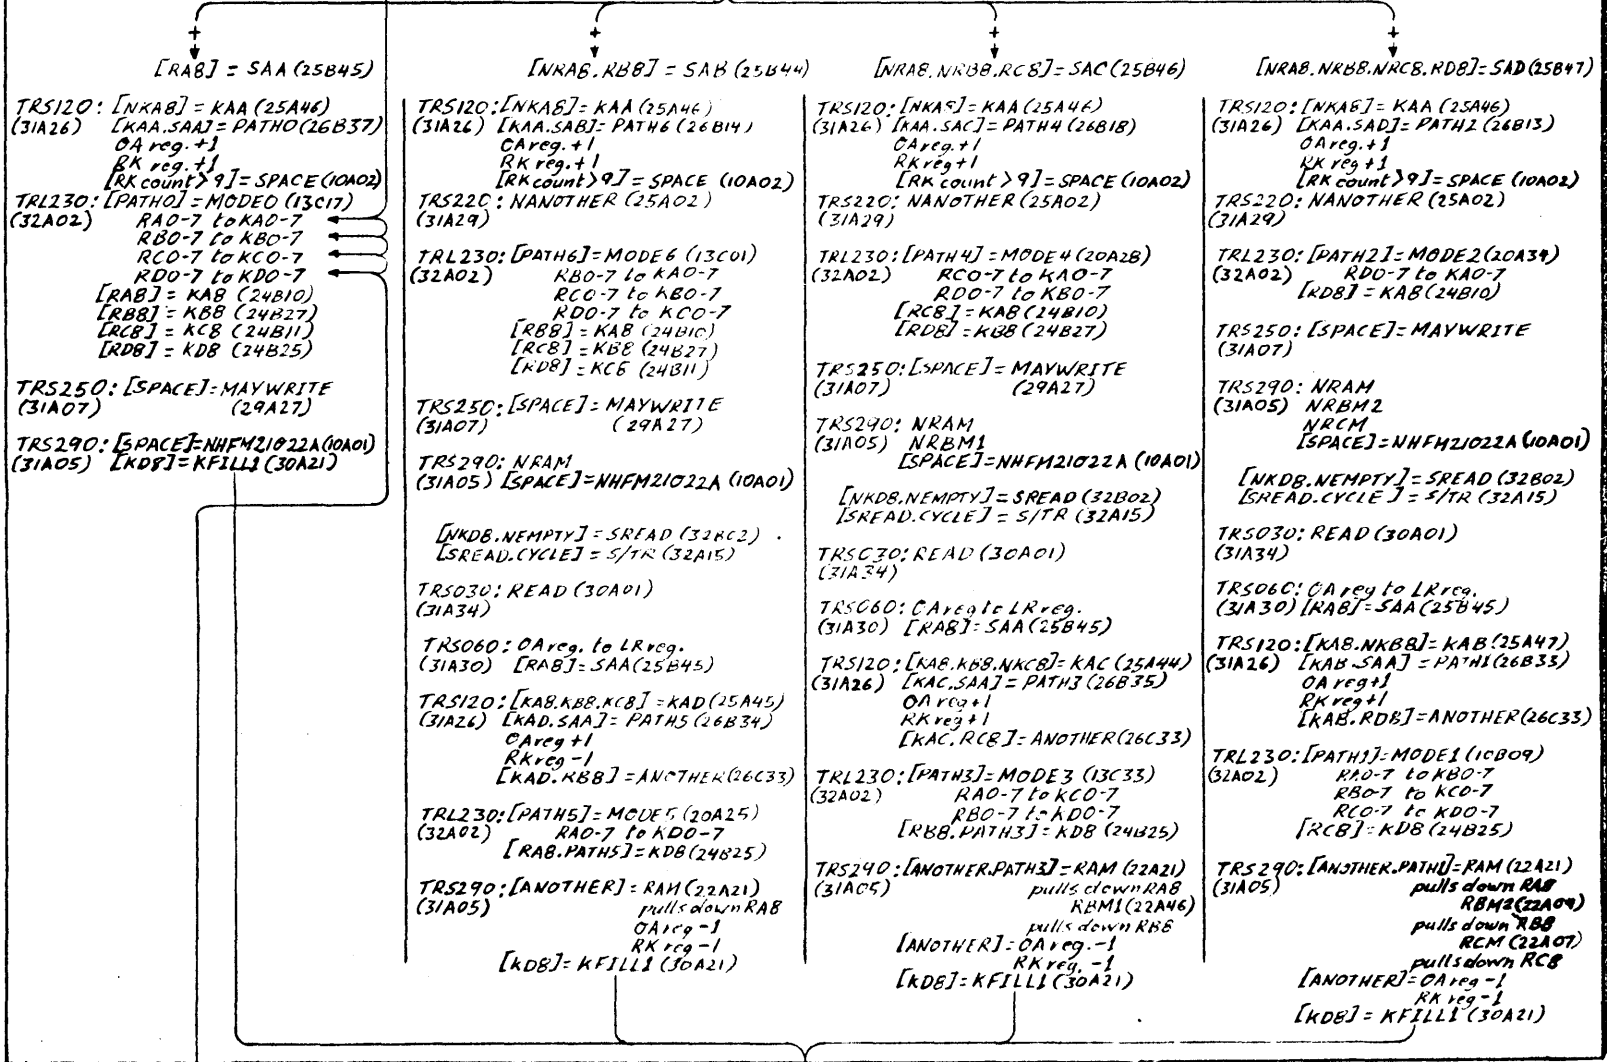 +
+
+
+
[RA8] = SAA (25B45)
TRS120: [NKA8] = KAA (25A46)
(31A26) [KAA.SAA] = PATH0 (26B37)
OA reg. +1
RK reg. +1
[RK count > 9] = SPACE (10A02)
TRL230: [PATH0] = MODE0 (13C17)
(32A02) RA0-7 to KA0-7
RB0-7 to KB0-7
RC0-7 to KC0-7
RD0-7 to KD0-7
[RA8] = KA8 (24B10)
[RB8] = KB8 (24B27)
[RC8] = KC8 (24B11)
[RD8] = KD8 (24B25)
TRS250: [SPACE] = MAYWRITE
(31A07) (29A27)
TRS290: [SPACE] = NHFM21022A (10A01)
(31A05) [KD8] = KFILL1 (30A21)
[NRA8.RB8] = SAB (25B44)
TRS120: [NKA8] = KAA (25A46)
(31A26) [KAA.SAB] = PATH6 (26B14)
OA reg. +1
RK reg. +1
[RK count > 9] = SPACE (10A02)
TRS220: NANOTHER (25A02)
(31A29)
TRL230: [PATH6] = MODE6 (13C01)
(32A02) RB0-7 to KA0-7
RC0-7 to KB0-7
RD0-7 to KC0-7
[RB8] = KA8 (24B10)
[RC8] = KB8 (24B27)
[RD8] = KC8 (24B11)
TRS250: [SPACE] = MAYWRITE
(31A07) (29A27)
TRS290: NRAM
(31A05) [SPACE] = NHFM21022A (10A01)
[NKD8.NEMPTY] = SREAD (32B02)
[SREAD.CYCLE] = S/TR (32A15)
TRS030: READ (30A01)
(31A34)
TRS060: OA reg. to LR reg.
(31A30) [RA8] = SAA (25B45)
TRS120: [KA8.KB8.KC8] = KAD (25A45)
(31A26) [KAD.SAA] = PATH5 (26B34)
OA reg +1
RK reg -1
[KAD.KB8] = ANOTHER (26C33)
TRL230: [PATH5] = MODE5 (20A25)
(32A02) RA0-7 to KD0-7
[RA8.PATH5] = KD8 (24B25)
TRS290: [ANOTHER] = RAM (22A21)
(31A05) pulls down RA8
OA reg -1
RK reg -1
[KD8] = KFILL1 (30A21)
[NRA8.NRB8.RC8] = SAC (25B46)
TRS120: [NKA8] = KAA (25A46)
(31A26) [KAA.SAC] = PATH4 (26B18)
OA reg. +1
RK reg +1
[RK count > 9] = SPACE (10A02)
TRS220: NANOTHER (25A02)
(31A29)
TRL230: [PATH4] = MODE4 (20A28)
(32A02) RC0-7 to KA0-7
RD0-7 to KB0-7
[RC8] = KA8 (24B10)
[RD8] = KB8 (24B27)
TRS250: [SPACE] = MAYWRITE
(31A07) (29A27)
TRS290: NRAM
(31A05) NRBM1
[SPACE] = NHFM21022A (10A01)
[NKD8.NEMPTY] = SREAD (32B02)
[SREAD.CYCLE] = S/TR (32A15)
TRS030: READ (30A01)
(31A34)
TRS060: OA reg to LR reg.
(31A30) [RA8] = SAA (25B45)
TRS120: [KA8.KB8.NKC8] = KAC (25A44)
(31A26) [KAC.SAA] = PATH3 (26B35)
OA reg +1
RK reg +1
[KAC.RC8] = ANOTHER (26C33)
TRL230: [PATH3] = MODE3 (13C33)
(32A02) RA0-7 to KC0-7
RB0-7 to KD0-7
[RB8.PATH3] = KD8 (24B25)
TRS290: [ANOTHER.PATH3] = RAM (22A21)
(31A05) pulls down RA8
RBM1 (22A46)
pulls down RB8
[ANOTHER] = OA reg. -1
RK reg. -1
[KD8] = KFILL1 (30A21)
[NRA8.NRB8.NRC8.RD8] = SAD (25B47)
TRS120: [NKA8] = KAA (25A46)
(31A26) [KAA.SAD] = PATH2 (26B13)
OA reg. +1
RK reg +1
[RK count > 9] = SPACE (10A02)
TRS220: NANOTHER (25A02)
(31A29)
TRL230: [PATH2] = MODE2 (20A34)
(32A02) RD0-7 to KA0-7
[RD8] = KA8 (24B10)
TRS250: [SPACE] = MAYWRITE
(31A07)
TRS290: NRAM
(31A05) NRBM2
NRCM
[SPACE] = NHFM21022A (10A01)
[NKD8.NEMPTY] = SREAD (32B02)
[SREAD.CYCLE] = S/TR (32A15)
TRS030: READ (30A01)
(31A34)
TRS060: OA reg to LR reg.
(31A30) [RA8] = SAA (25B45)
TRS120: [KA8.NKB8] = KAB (25A47)
(31A26) [KAB.SAA] = PATH1 (26B33)
OA reg +1
RK reg +1
[KAB.RD8] = ANOTHER (26C33)
TRL230: [PATH1] = MODE1 (10B09)
(32A02) RA0-7 to KB0-7
RB0-7 to KC0-7
RC0-7 to KD0-7
[RC8] = KD8 (24B25)
TRS290: [ANOTHER.PATH1] = RAM (22A21)
(31A05) pulls down RA8
RBM2 (22A09)
pulls down RB8
RCM (22A07)
pulls down RC8
[ANOTHER] = OA reg -1
RK reg -1
[KD8] = KFILL1 (30A21)